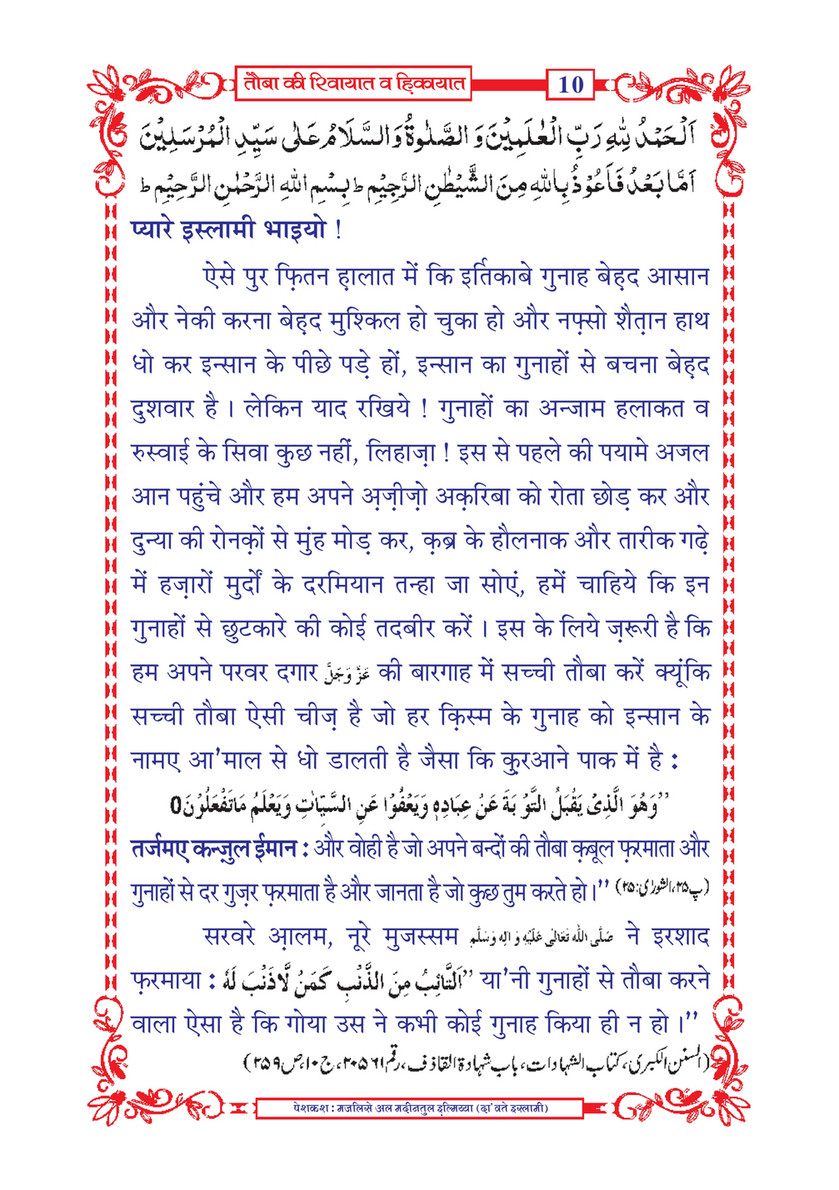 तौबा की रिवायात व हिकायात
10
اَلْحَمْدُ لِلّٰهِ رَبِّ الْعٰلَمِيْنَ وَ الصَّلٰوةُ وَالسَّلَامُ عَلٰى سَيِّدِ الْمُرْسَلِيْنَ
اَمَّا بَعْدُ فَاَعُوْذُ بِاللّٰهِ مِنَ الشَّيْطٰنِ الرَّجِيْمِ ط بِسْمِ اللّٰهِ الرَّحْمٰنِ الرَّحِيْمِ ط
प्यारे इस्लामी भाइयो !
ऐसे पुर फ़ितन ह़ालात में कि इर्तिकाबे गुनाह बेह़द आसान
और नेकी करना बेह़द मुश्किल हो चुका हो और नफ़्सो शैत़ान हाथ
धो कर इन्सान के पीछे पड़े हों, इन्सान का गुनाहों से बचना बेह़द
दुशवार है । लेकिन याद रखिये ! गुनाहों का अन्जाम हलाकत व
रुस्वाई के सिवा कुछ नहीं, लिहाज़ा ! इस से पहले की पयामे अजल
आन पहुंचे और हम अपने अ़ज़ीज़ो अक़रिबा को रोता छोड़ कर और
दुन्या की रोनक़ों से मुंह मोड़ कर, क़ब्र के हौलनाक और तारीक गढ़े
में हज़ारों मुर्दों के दरमियान तन्हा जा सोएं, हमें चाहिये कि इन
गुनाहों से छुटकारे की कोई तदबीर करें । इस के लिये ज़रूरी है कि
हम अपने परवर दगार عَزَّ وَجَلَّ की बारगाह में सच्ची तौबा करें क्यूंकि
सच्ची तौबा ऐसी चीज़ है जो हर क़िस्म के गुनाह को इन्सान के
नामए आ'माल से धो डालती है जैसा कि क़ुरआने पाक में है :
’’وَهُوَ الَّذِىْ يَقْبَلُ التَّوْ بَةَ عَنْ عِبَادِهٖ وَيَعْفُوْا عَنِ السَّيِّاٰتِ وَيَعْلَمُ مَاتَفْعَلُوْنَ0
तर्जमए कन्ज़ुल ईमान : और वोही है जो अपने बन्दों की तौबा क़बूल फ़रमाता और
गुनाहों से दर गुज़र फ़रमाता है और जानता है जो कुछ तुम करते हो ।’’ (پ۲۵،الشورٰی:۲۵)
सरवरे आ़लम, नूरे मुजस्सम صَلَّى اللّٰهُ تَعَالٰى عَلَيْهِ وَ اٰلِهٖ وَسَلَّم ने इरशाद
फ़रमाया : ’’اَلتَّائِبُ مِنَ الذَّنْبِ كَمَنْ لَّاذَنْبَ لَهٗ या'नी गुनाहों से तौबा करने
वाला ऐसा है कि गोया उस ने कभी कोई गुनाह किया ही न हो ।’’
(السنن الکبری، کتاب الشہادات، باب شہادۃ القاذف، رقم ۲۰۵۶۱، ج۱۰، ص۲۵۹)
पेशकश : मजलिसे अल मदीनतुल इल्मिय्या (दा'वते इस्लामी)